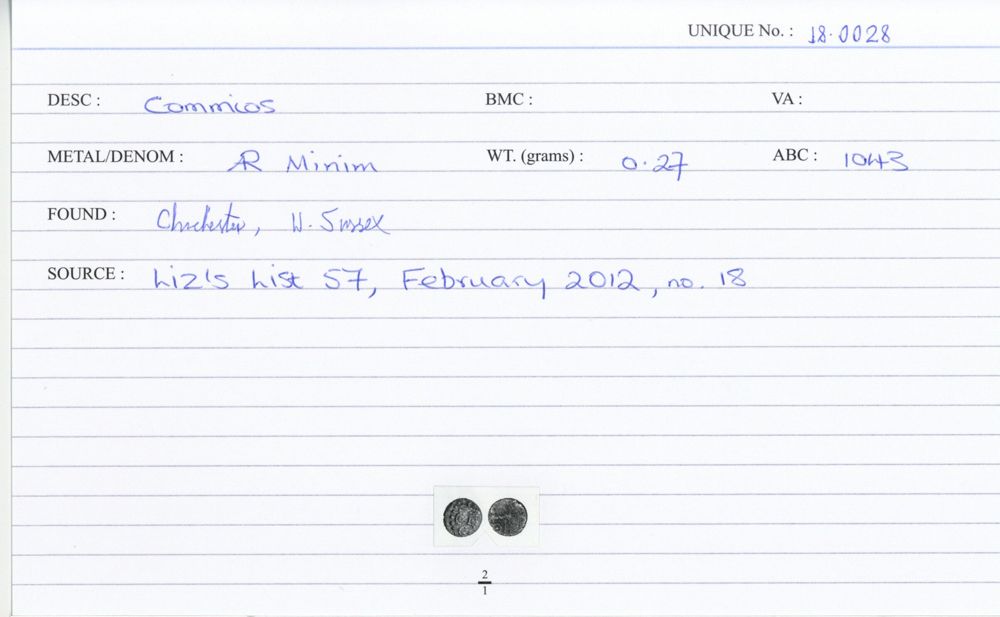 UNIQUE No. : 18.0028
DESC : Commios BMC : VA :
METAL/DENOM : AR Minim WT. (grams) : 0.27 ABC : 1043
FOUND : Chichester, W. Sussex
SOURCE : Liz's List 57, February 2012, no. 18
2
1